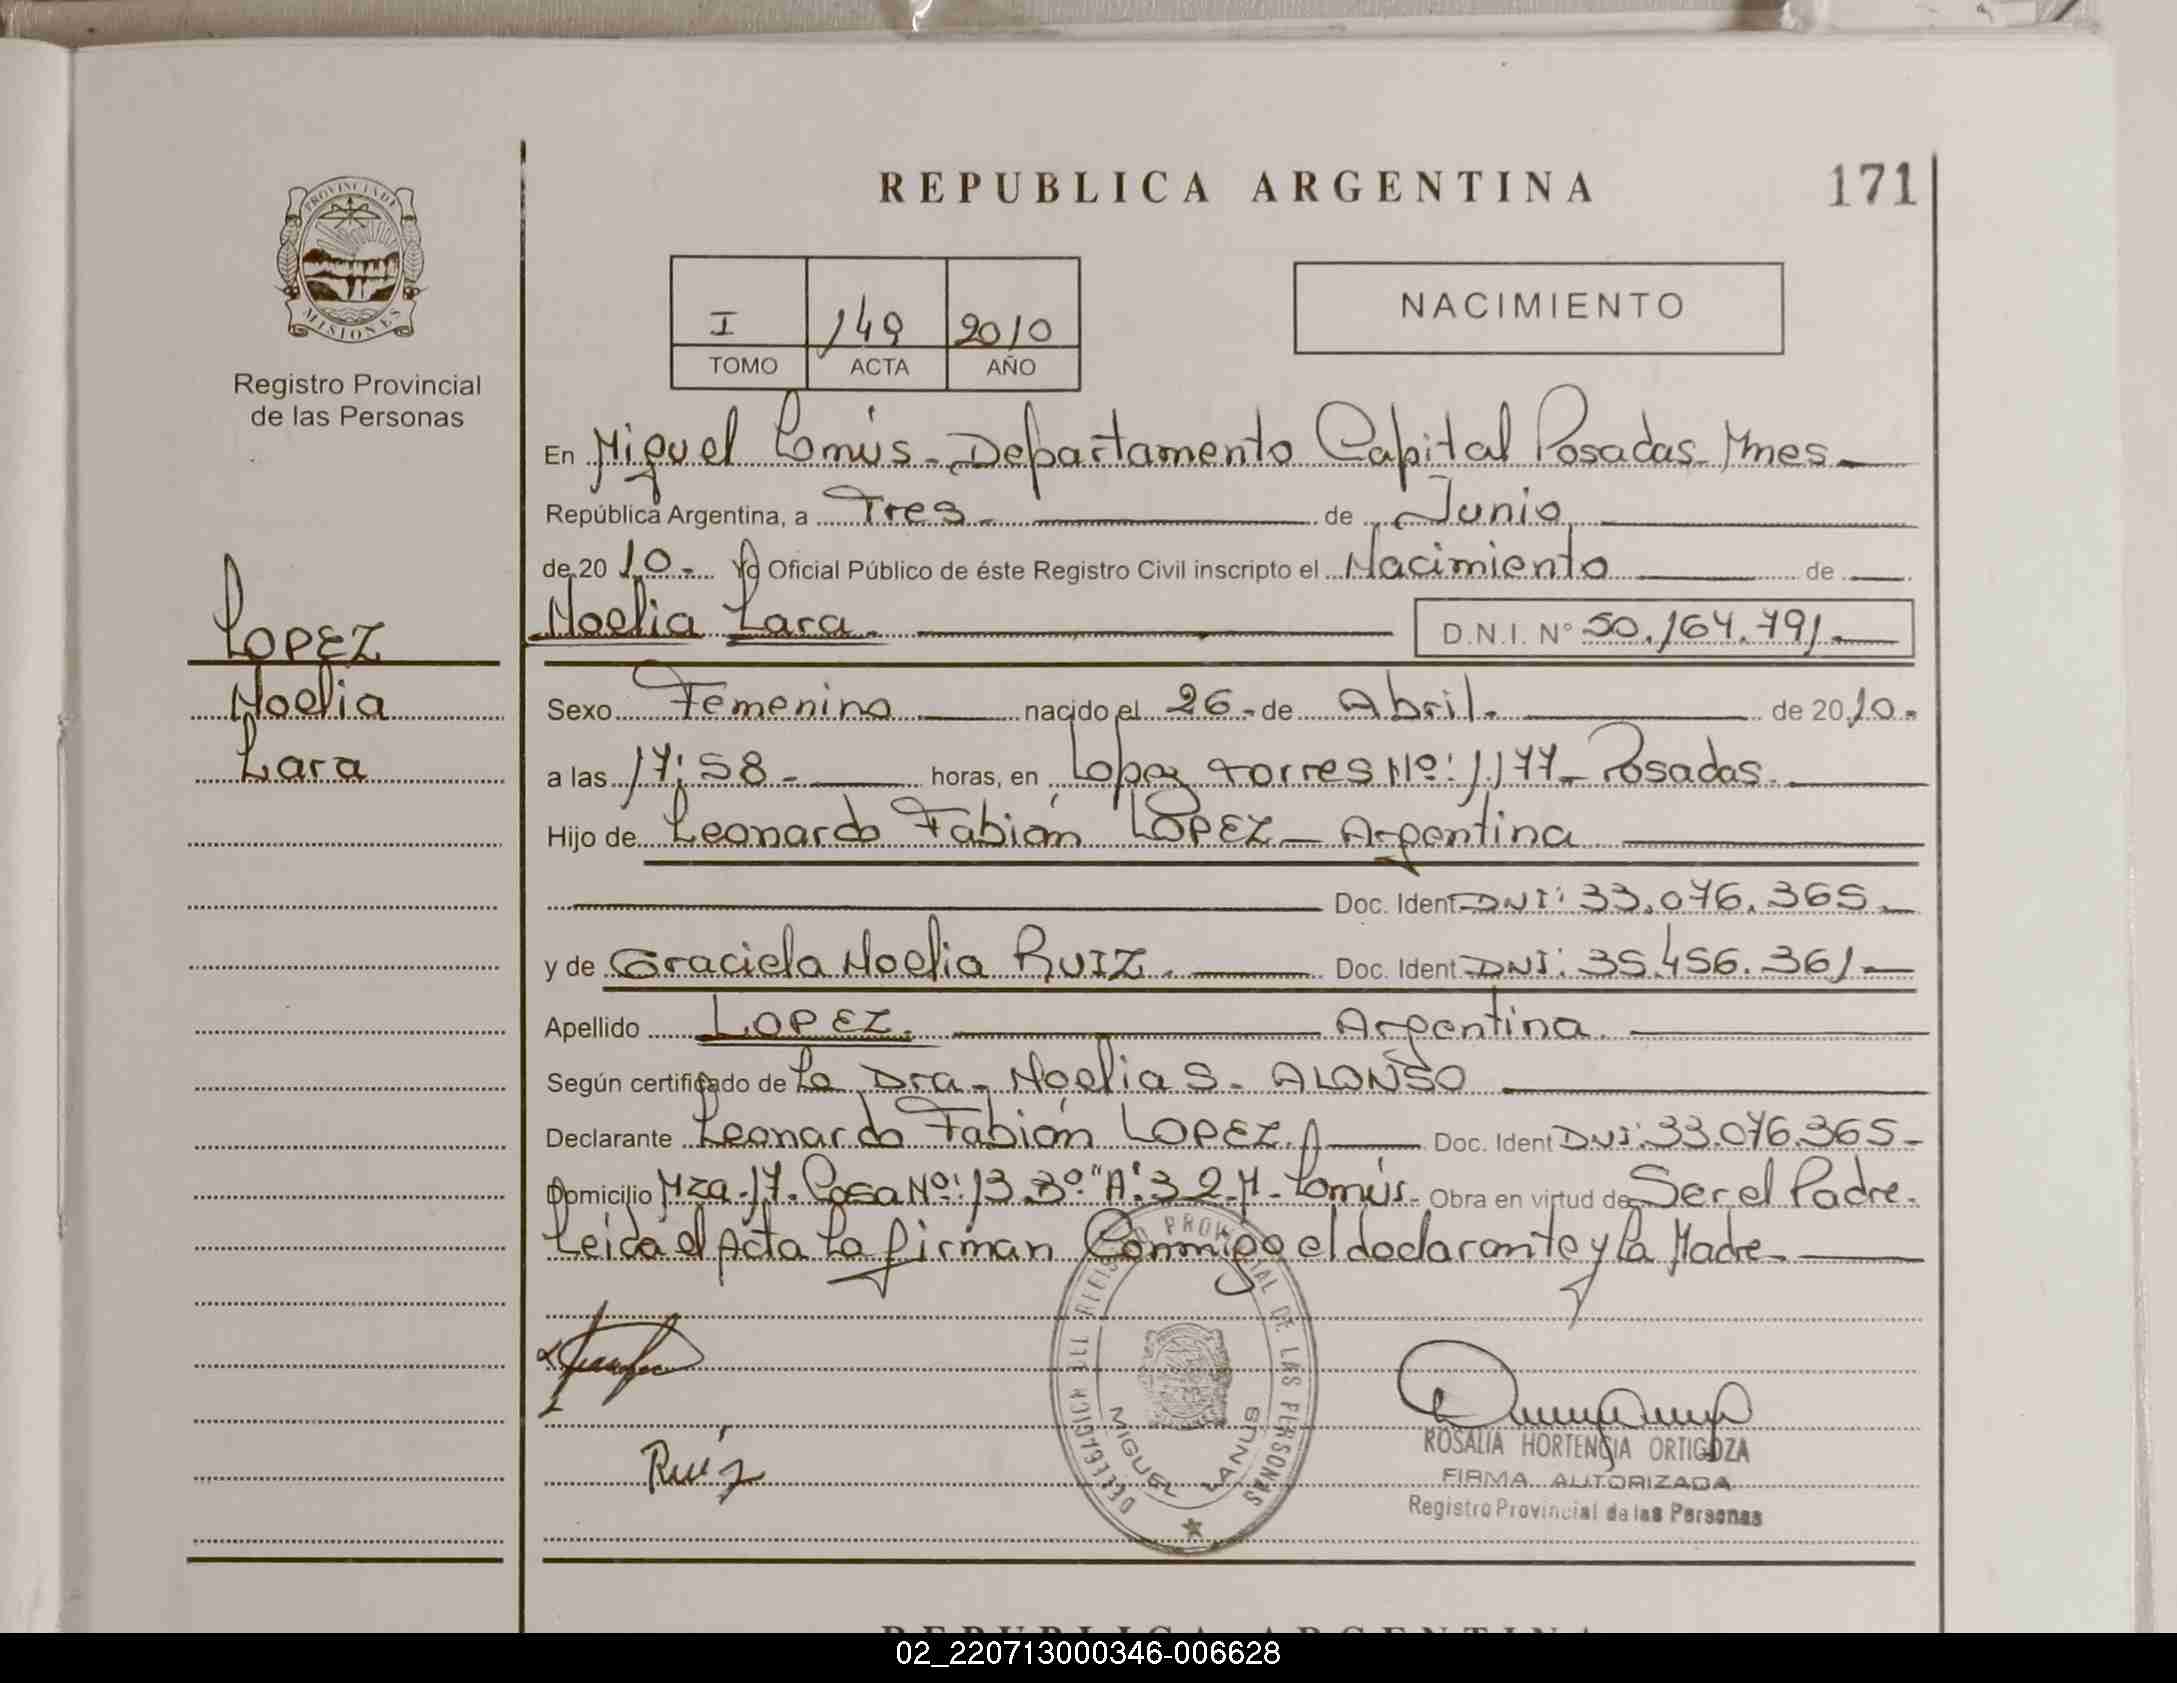 REPUBLICA ARGENTINA
171
PROVINCIA DE
MISIONES
Registro Provincial
de las Personas
I 149 2010
TOMO ACTA AÑO
NACIMIENTO
LOPEZ
Noelia
Lara
En Miguel Lanús - Departamento Capital Posadas - Mnes -
República Argentina, a Tres - de Junio
de 20 10 - Yo Oficial Público de éste Registro Civil inscripto el Nacimiento de
Noelia Lara. D.N.I. N° 50.164.791 -
Sexo Femenino nacido el 26 - de Abril. de 20 10 -
a las 17:58 - horas, en Lopez Torres Nº: 1.177 - Posadas.
Hijo de Leonardo Fabián LOPEZ - Argentina
Doc. Ident DNI: 33.076.365 -
y de Graciela Noelia RUIZ. Doc. Ident DNI: 35.456.361 -
Apellido LOPEZ. Argentina.
Según certificado de La Dra - Noelia S. ALONSO
Declarante Leonardo Fabián LOPEZ. Doc. Ident DNI: 33.076.365 -
Domicilio Mza. 17. Casa Nº: 13. Bº "A" 3 2 - M - Lanús - Obra en virtud de Ser el Padre.
Leída el Acta La firman Conmigo el declarante y La Madre -
Ruiz
DELEGACION DEL REGISTRO PROVINCIAL DE LAS PERSONAS
MIGUEL LANUS
ROSALIA HORTENCIA ORTIGOZA
FIRMA AUTORIZADA
Registro Provincial de las Personas
REPUBLICA ARGENTINA
02_220713000346-006628